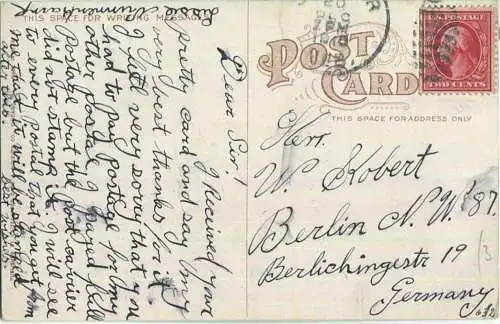 THIS SPACE FOR WRITING MESSAGES
Dear Sir!
I received your
pretty card and say my
very best thanks for it
I felt very sorry that you
had to pay postage for my
other postal I payed full
Postage but the post carrier
did not stamp it. I will see
to every postal that you get from
me that it will be stamped
after this.
POST CARD
THIS SPACE FOR ADDRESS ONLY
U.S. POSTAGE
TWO CENTS
Herr.
W. Kobert
Berlin N. W. 87
Berlichingestr 19
Germany